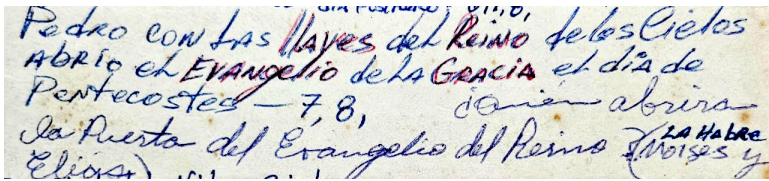 Pedro con las llaves del Reino de los Cielos
Abrio el Evangelio de la Gracia el dia de
Pentecostes — 7,8, ¿Quien abrira
la Puerta del Evangelio del Reino? (Moises y
La Habre
Elias)